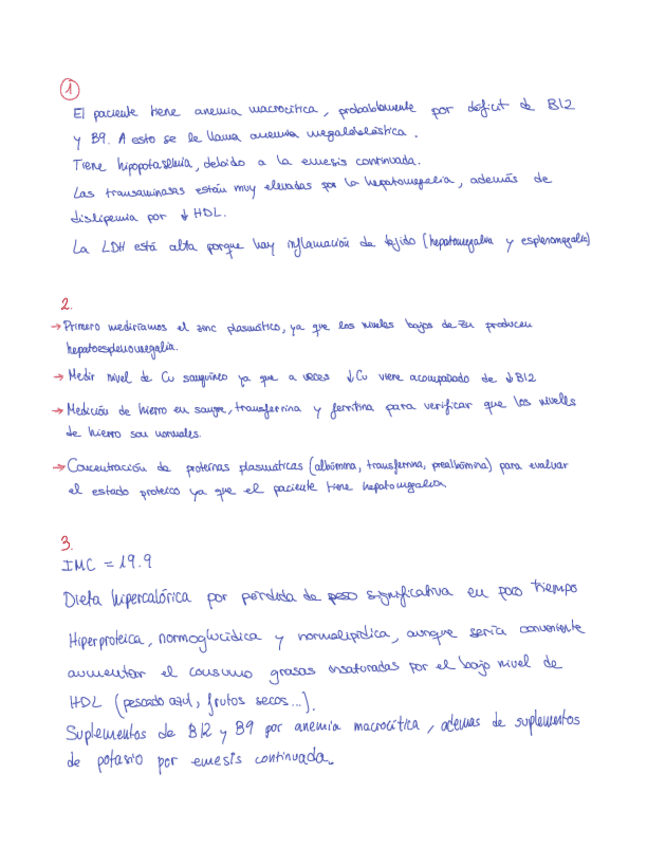 1
El paciente tiene anemia macrocítica, probablemente por déficit de B12
y B9. A esto se le llama anemia megaloblástica.
Tiene hipopotasemia, debido a la emesis continuada.
Las transaminasas están muy elevadas por la hepatomegalia, además de
dislipemia por ↓ HDL.
La LDH está alta porque hay inflamación de tejido (hepatomegalia y esplenomegalia)
2.
→ Primero mediríamos el zinc plasmático, ya que los niveles bajos de Zn producen
hepatoesplenomegalia.
→ Medir nivel de Cu sanguíneo ya que a veces ↓Cu viene acompañado de ↓B12
→ Medición de hierro en sangre, transferrina y ferritina para verificar que los niveles
de hierro son normales.
→ Concentración de proteínas plasmáticas (albúmina, transferrina, prealbúmina) para evaluar
el estado proteico ya que el paciente tiene hepatomegalia.
3.
IMC = 19.9
Dieta hipercalórica por pérdida de peso significativa en poco tiempo
Hiperproteica, normoglucídica y normolipídica, aunque sería conveniente
aumentar el consumo grasas insaturadas por el bajo nivel de
HDL (pescado azul, frutos secos...).
Suplementos de B12 y B9 por anemia macrocítica, además de suplementos
de potasio por emesis continuada.